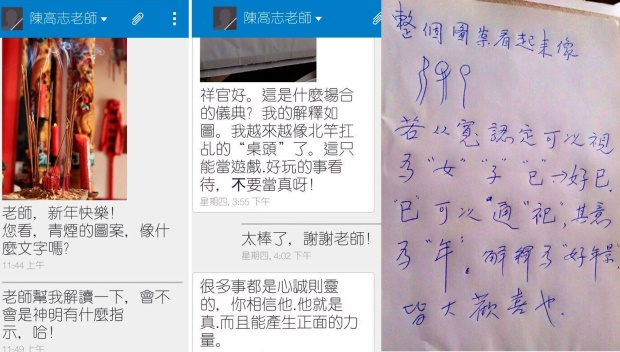 陳高志老師
老師，新年快樂！
您看，青煙的圖案，像什
麼文字嗎？
11:44 上午
老師幫我解讀一下，會不
會是神明有什麼指
示，哈！
11:49 上午
陳高志老師
祥官好。這是什麼場合
的儀典？我的解釋如
圖。我越來越像北竿扛
乩的“桌頭”了。這只
能當遊戲.好玩的事看
待，不要當真呀！
星期四, 3:55 下午
太棒了，謝謝老師！
星期四, 4:02 下午
很多事都是心誠則靈
的，你相信他.他就是
真.而且能產生正面的力
量。
整個圖案看起來像
若从寬認定可以視
為"女""子""巳"→好巳.
"巳"可以"通"祀",其意
為"年".解釋為"好年景"
皆大歡喜也.